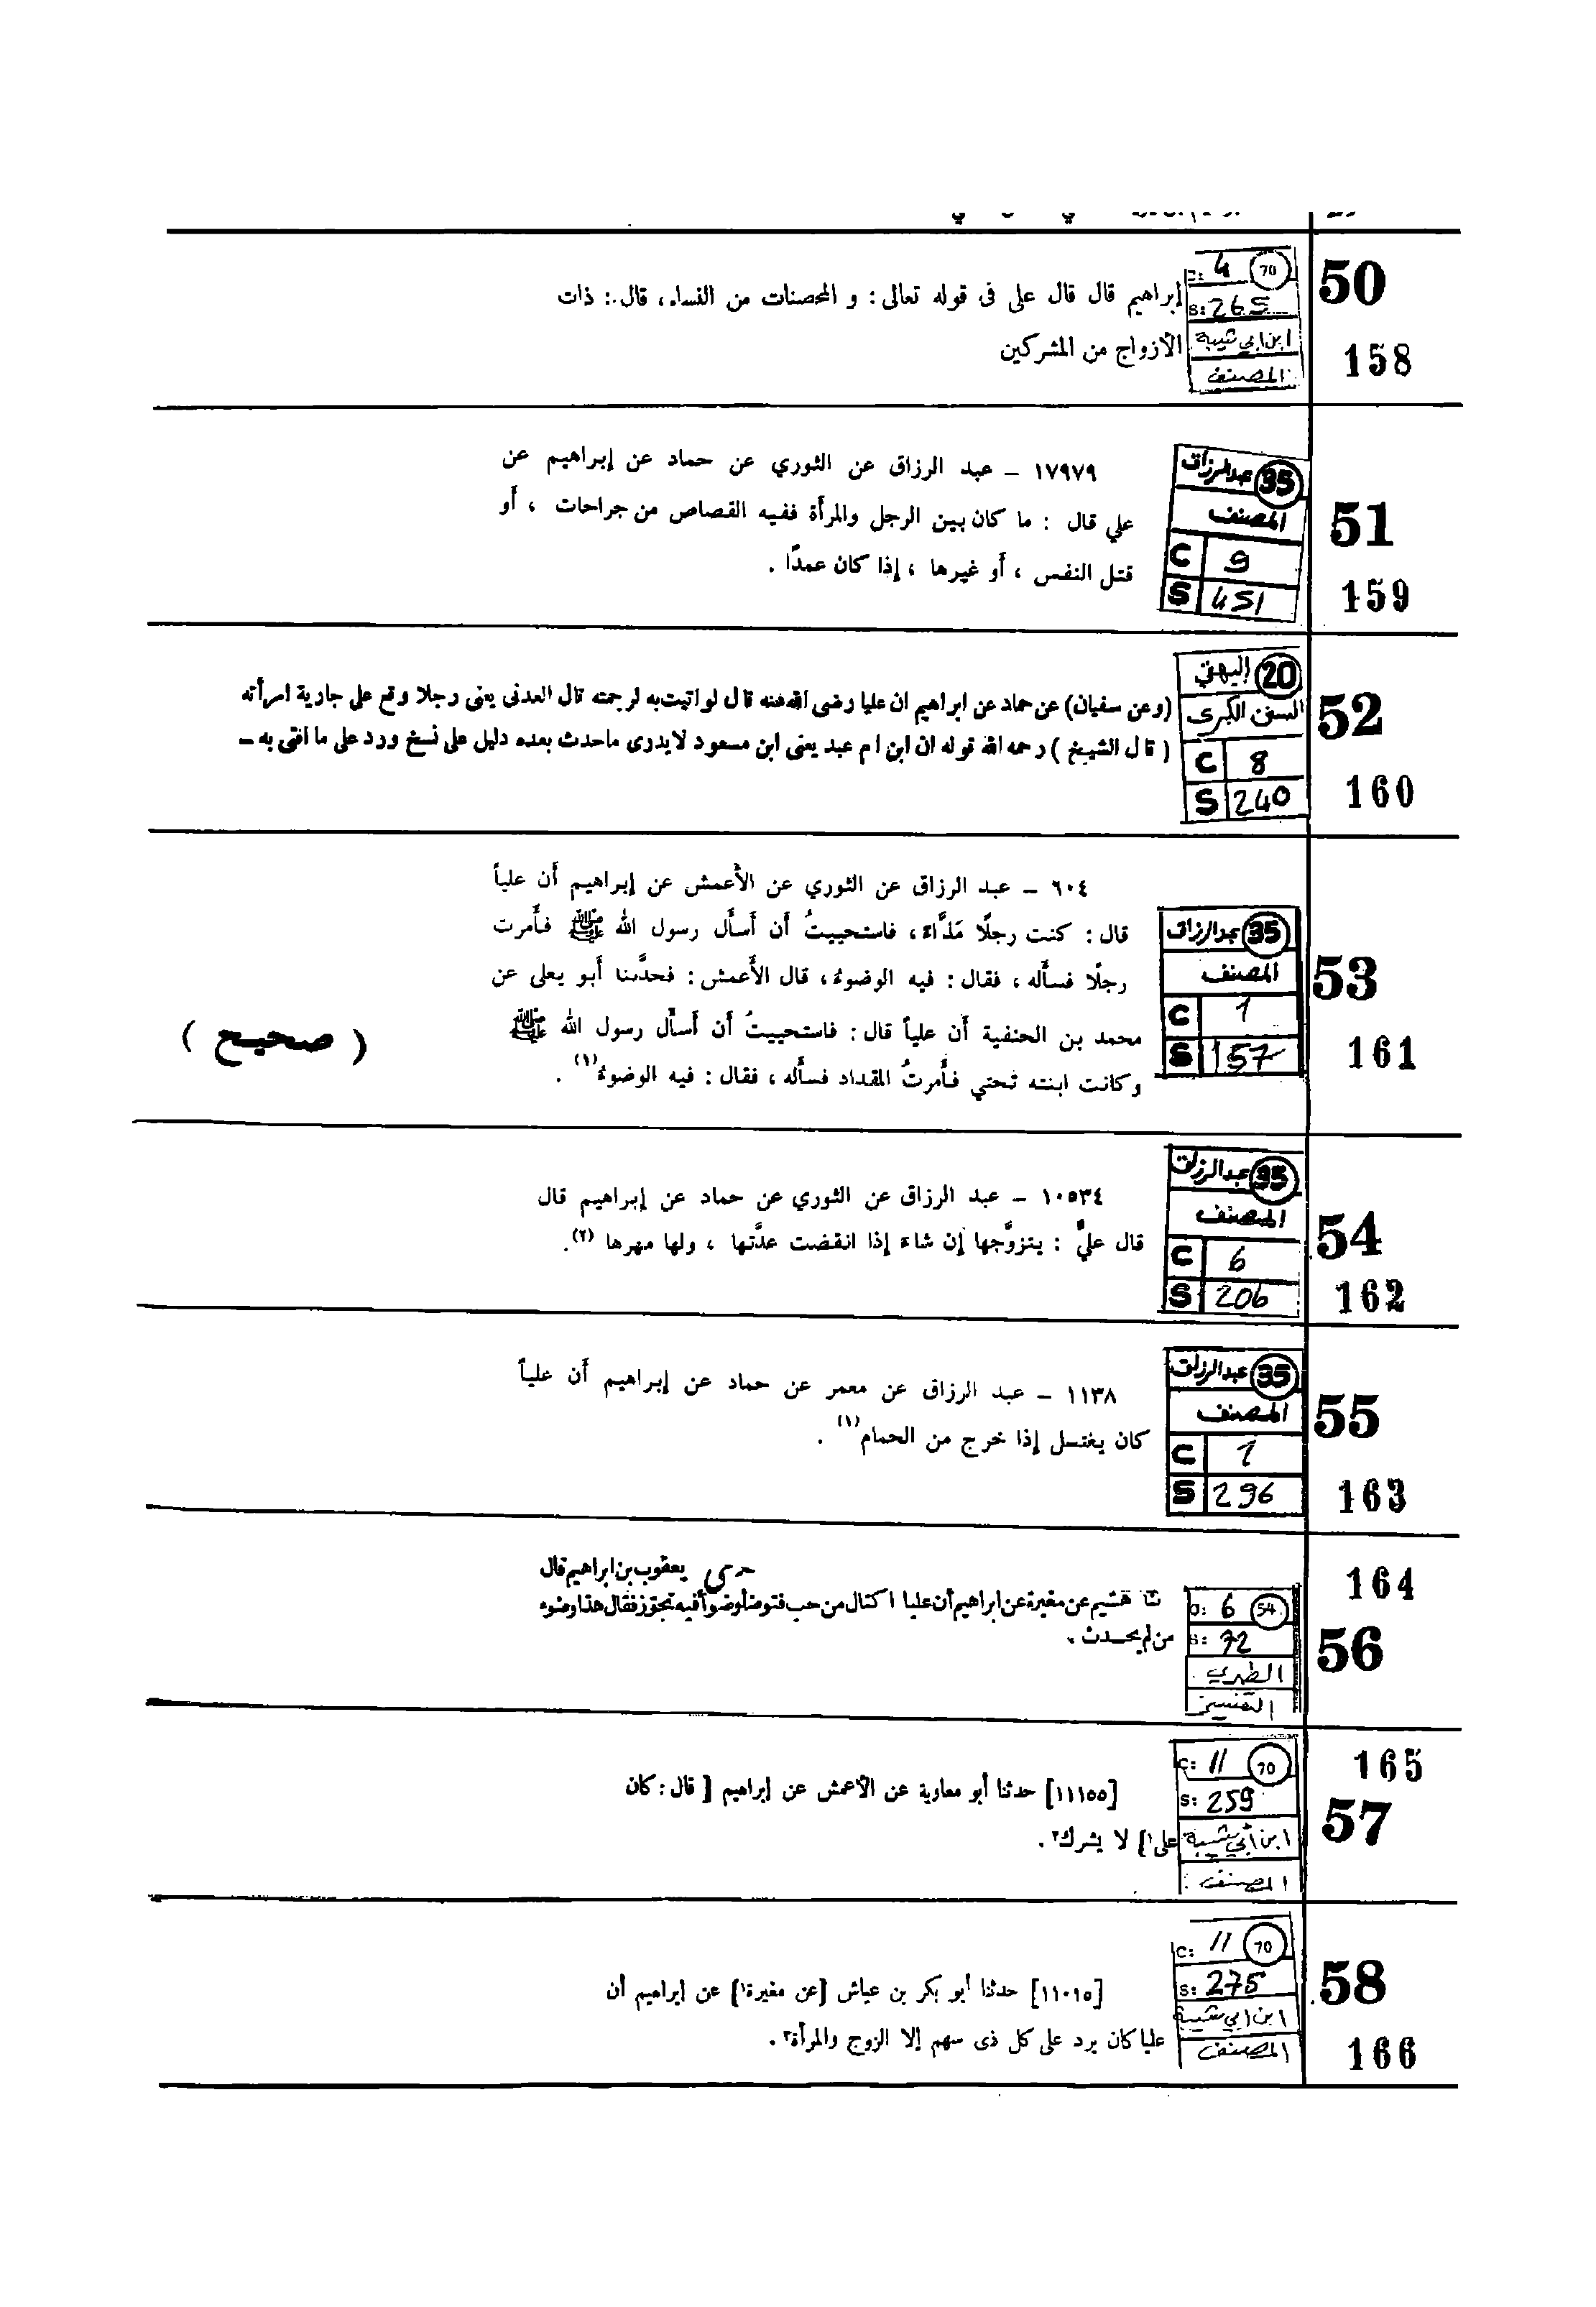 50
158
C: 4 70
S: 265
ابن ابي شيبة
المصنف
إبراهيم قال قال على فى قوله تعالى: و المحصنات من النساء، قال: ذات
الأزواج من المشركين
51
159
عبدالرزاق 35
المصنف
C 9
S 451
١٧٩٧٩ – عبد الرزاق عن الثوري عن حماد عن إبراهيم عن
علي قال : ما كان بين الرجل والمرأة ففيه القصاص من جراحات ، أو
قتل النفس ، أو غيرها ، إذا كان عمدًا .
52
160
البيهقي 20
السنن الكبرى
C 8
S 240
(وعن سفيان) عن حماد عن ابراهيم ان عليا رضى الله عنه قال لو اتيت به لرجمته قال العدنى يعنى رجلا وقع على جارية امرأته
( قال الشيخ ) رحمه الله قوله ان ابن ام عبد يعنى ابن مسعود لايدرى ماحدث بعده دليل على نسخ ورد على ما افتى به –
53
161
عبدالرزاق 35
المصنف
C 1
S 157
٦٠٤ – عبد الرزاق عن الثوري عن الأعمش عن إبراهيم أن علياً
قال : كنت رجلًا مَذَّاءً ، فاستحييتُ أن أسأل رسول الله ﷺ فأمرت
رجلًا فسأله ، فقال : فيه الوضوءُ ، قال الأعمش : فحدَّثنا أبو يعلى عن
محمد بن الحنفية أن علياً قال : فاستحييتُ أن أسأل رسول الله ﷺ
وكانت ابنته تحتي فأمرتُ المقداد فسأله ، فقال : فيه الوضوءُ (١) .
( صحيح )
54
162
عبدالرزاق 35
المصنف
C 6
S 206
١٠٥٣٤ – عبد الرزاق عن الثوري عن حماد عن إبراهيم قال
قال عليٌّ : يتزوَّجها إن شاءَ إذا انقضت عدَّتها ، ولها مهرها (٢).
55
163
عبدالرزاق 35
المصنف
C 1
S 296
١١٣٨ – عبد الرزاق عن معمر عن حماد عن إبراهيم أن علياً
كان يغتسل إذا خرج من الحمام (١) .
164
56
C: 6 54
S: 72
الطبري
التفسير
حدثنى يعقوب بن ابراهيم قال
ثنا هشيم عن مغيرة عن ابراهيم أن عليا اكتال من حب فتوضأ وضوأ فيه تجوز فقال هذا وضوء
من لم يحدث .
165
57
C: 11 70
S: 259
ابن أبي شيبة
المصنف
[١١١٥٥] حدثنا أبو معاوية عن الأعمش عن إبراهيم [ قال : كان
على١] لا يشرك٢ .
58
166
C: 11 70
S: 275
ابن ابي شيبة
المصنف
[١١٠١٥] حدثنا أبو بكر بن عياش [عن مغيرة١] عن إبراهيم أن
عليا كان يرد على كل ذى سهم إلا الزوج والمرأة٢ .